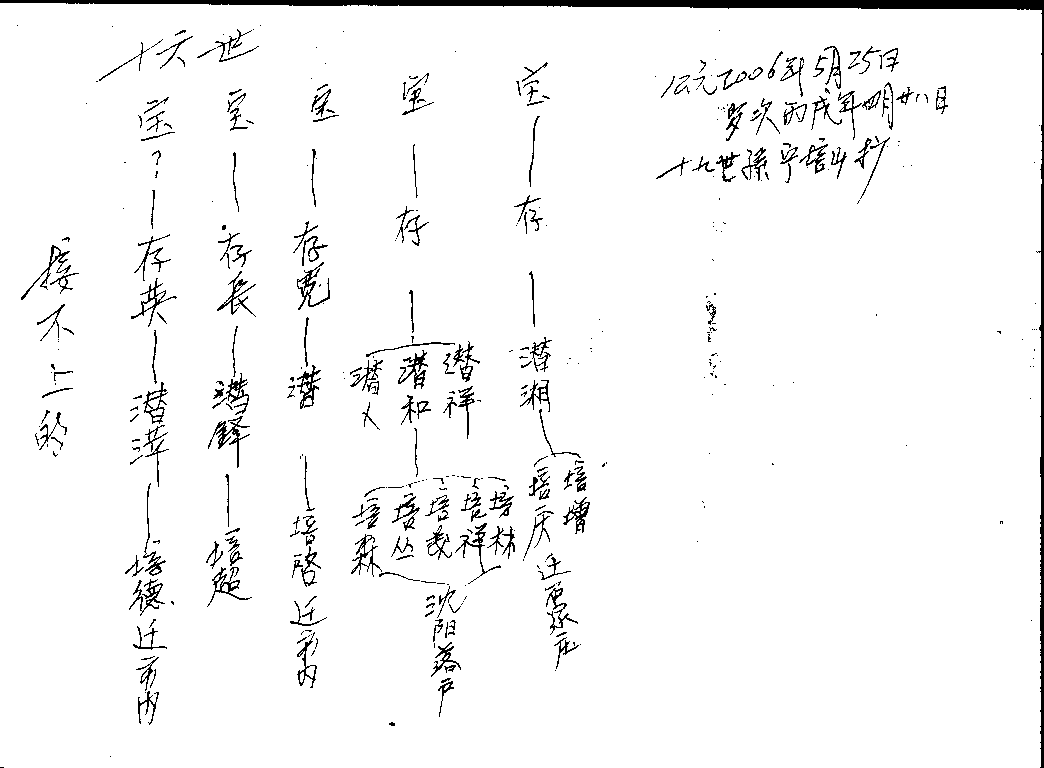 公元2006年5月25日
岁次丙戌年四月廿八日
十九世孙宁培山抄
十六世
宝
存
潜湘
培增
培庆
迁石家庄
宝
存
潜祥
潜和
潜人
培林
培祥
培义
培丛
培森
沈阳落户
宝
存宽
潜
培启 迁市内
宝
存長
潜鐸
培超
宝?
存英
潜洋
培德 迁市内
接不上的